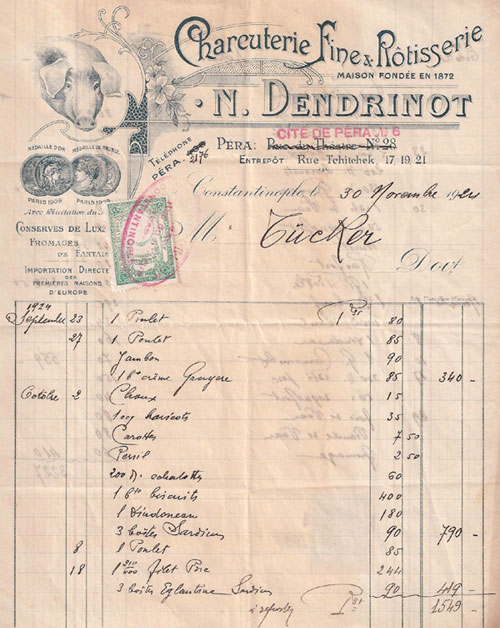 Charcuterie Fine & Rôtisserie
MAISON FONDÉE EN 1872
N. DENDRINOT
CITÉ DE PÉRA No 6
TÉLÉPHONE PÉRA: 2176
PÉRA: Rue du Théatre No 28
ENTREPÔT Rue Tchitchek, 17 19 21
MÉDAILLE D'OR
PARIS 1909 PARIS 1909
Constantinople, le 30 Novembre 1924
CONSERVES DE LUXE
FROMAGES
DE FANTAIS
IMPORTATION DIRECTE
DES
PREMIÈRES MAISONS
D'EUROPE
M Tücker
Doit
1924
Septembre 23 1 Poulet 80
27 1 Poulet 85
Jambon 90
1 bte crème Gruyere 85 340 -
Octobre 2 Choux 15
haricots 35
Carottes 7 50
Persil 2 50
200 échalottes 60
1 bte biscuits 400
1 Dindoneau 180
3 boîtes Sardines 90 790 -
8 1 Poulet 85
18 filet Porc 244
3 boîtes Eglantine Sardines 90 419 -
à reporter 1549 -